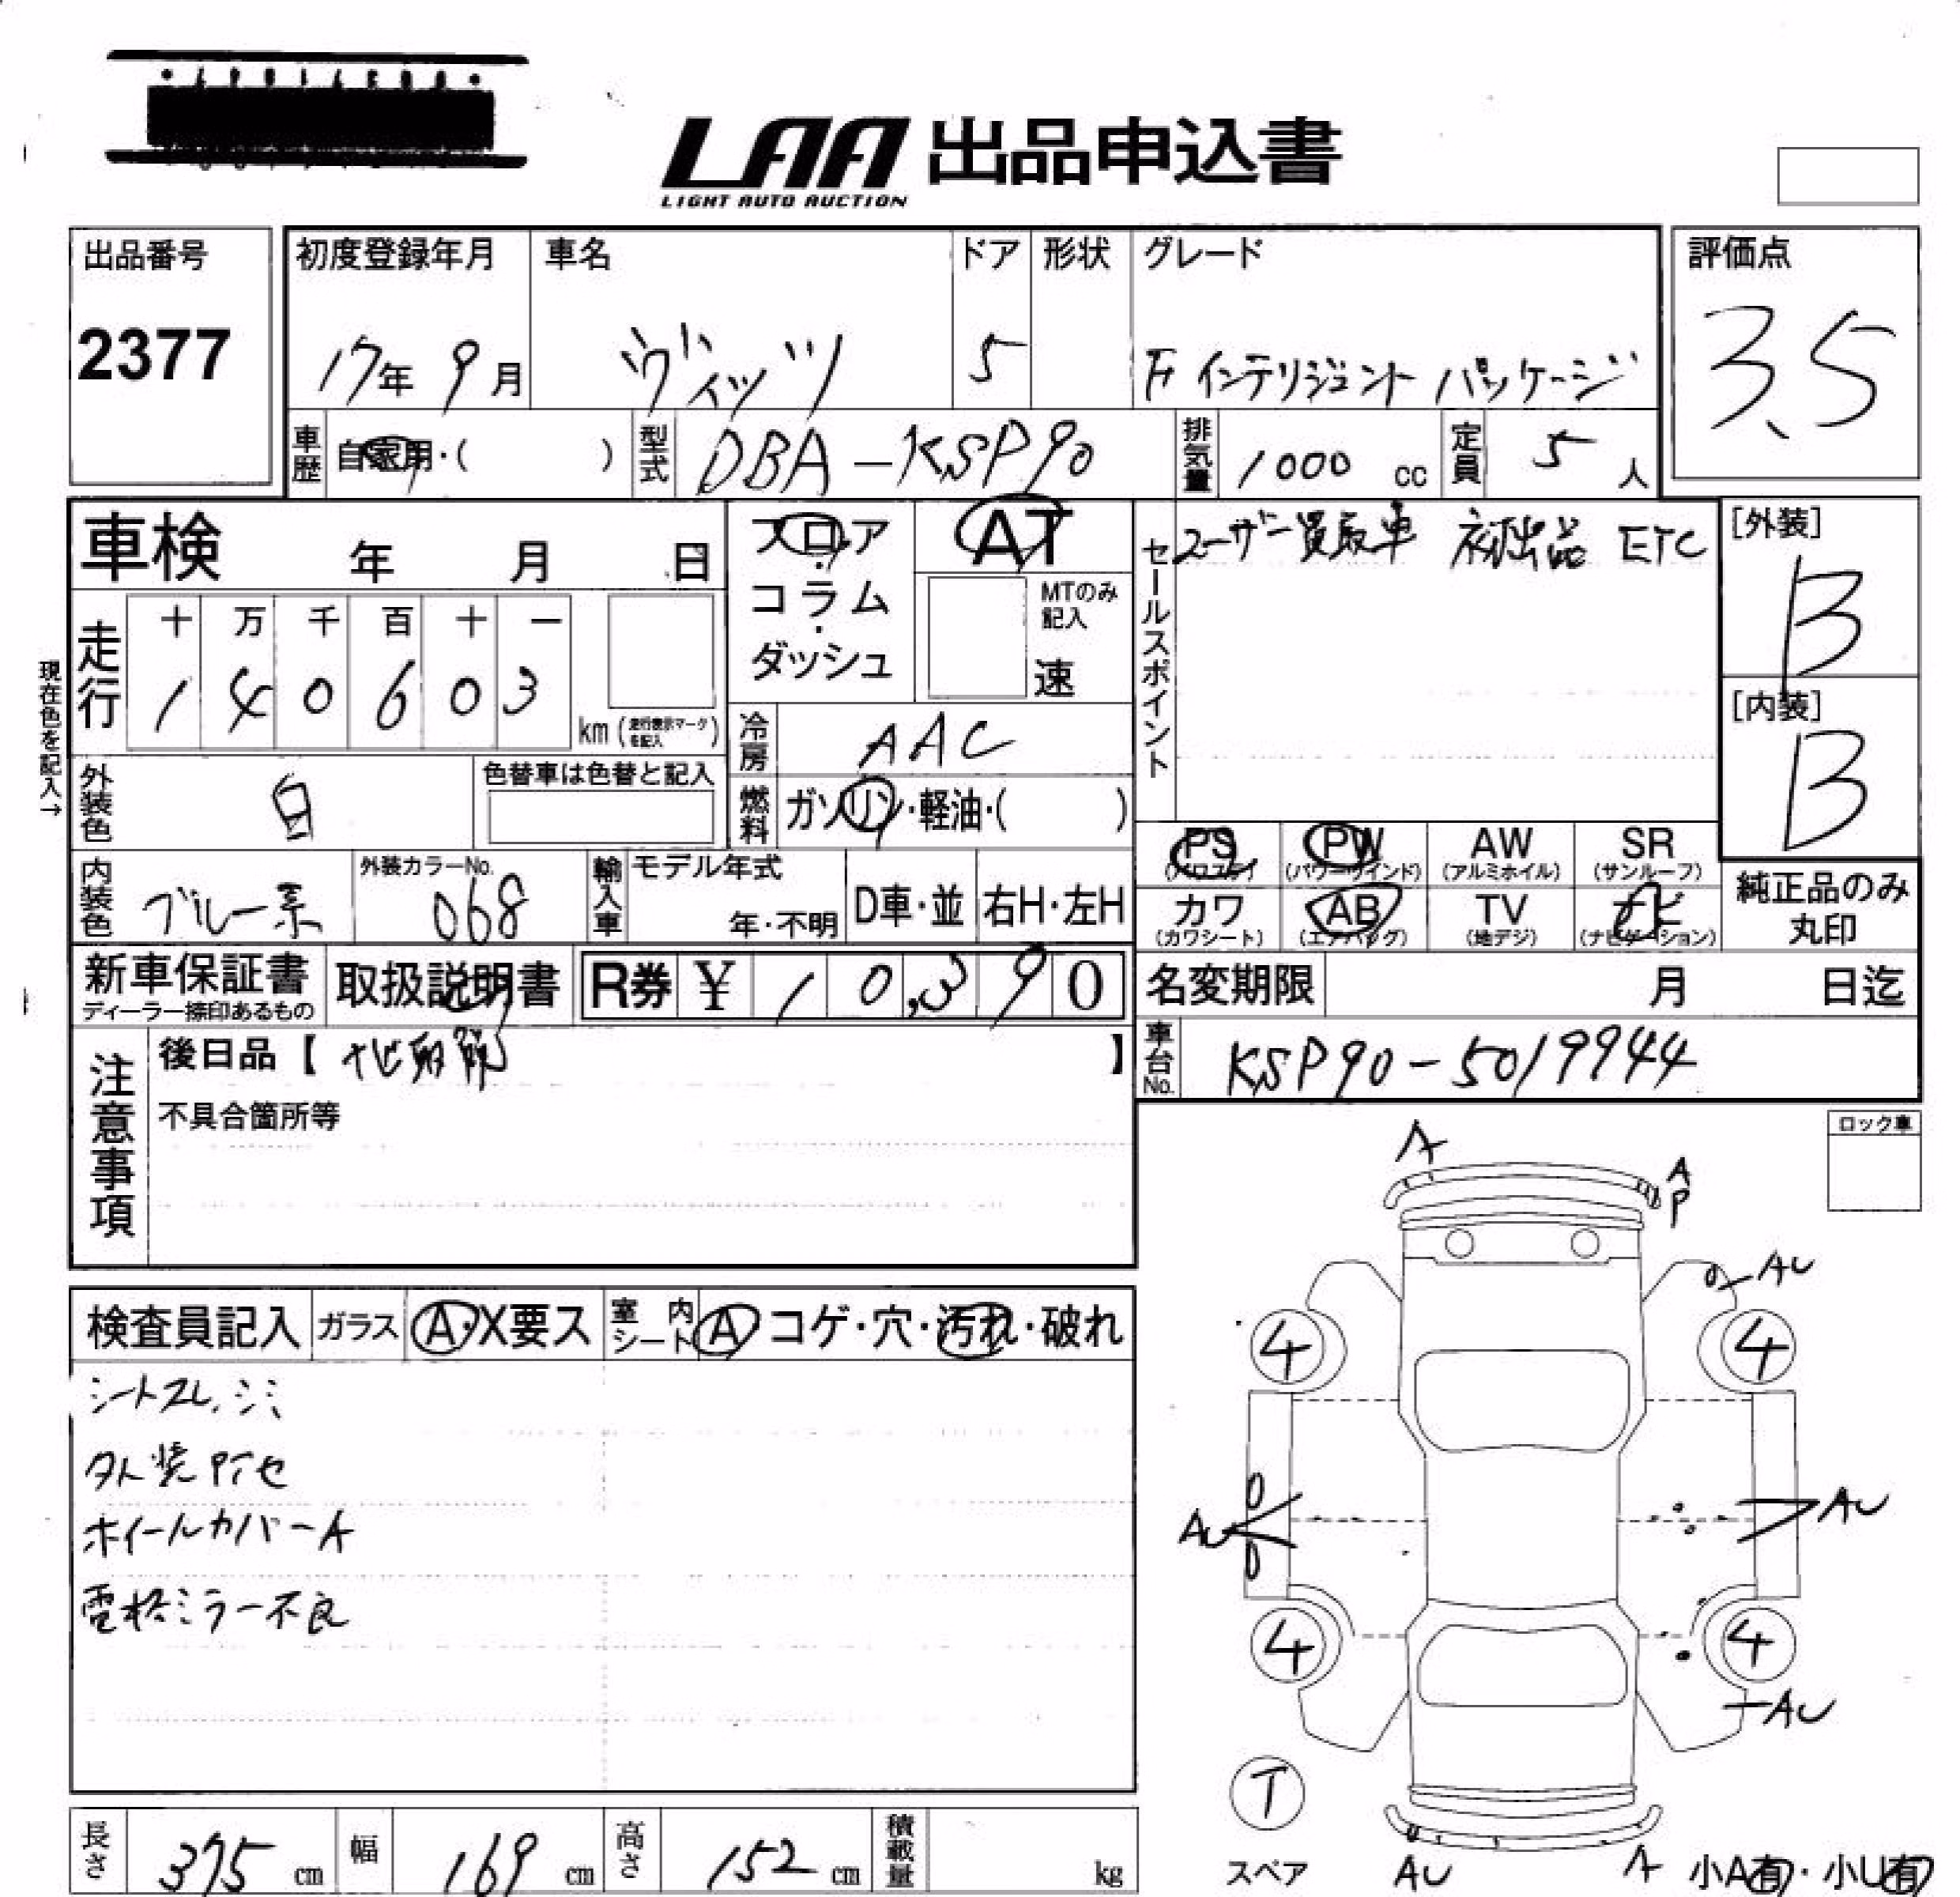 LAA 出品申込書
LIGHT AUTO AUCTION
出品番号 初度登録年月 車名 ドア 形状 グレード 評価点
2377 17年 9月 ヴィッツ 5 F インテリジェント パッケージ 3.5
車歴 自家用・( ) 型式 DBA-KSP90 排気量 1000 cc 定員 5 人
車検 年 月 日
フロア・コラム・ダッシュ
AT
MTのみ記入
速
セールスポイント
ユーザー買取車 初出品 ETC
[外装]
B
[内装]
B
現在色を記入→
走行 十 万 千 百 十 一
1 4 0 6 0 3 km (走行表示マークを記入)
冷房 AAC
外装色 白 色替車は色替と記入
燃料 ガソリン・軽油・( )
内装色 ブルー系 外装カラーNo. 068
輸入車 モデル年式 年・不明 D車・並 右H・左H
PS (パワステ) PW (パワーウインド) AW (アルミホイル) SR (サンルーフ)
カワ (カワシート) AB (エアバッグ) TV (地デジ) ナビ (ナビゲーション)
純正品のみ丸印
新車保証書 ディーラー捺印あるもの 取扱説明書 R券 ¥ 10,390
名変期限 月 日迄
車台No. KSP90-5019944
注意事項
後日品【 ナビ取説 】
不具合箇所等
ロック車
検査員記入 ガラス A・X要ス 室内シート A コゲ・穴・汚れ・破れ
シートスレ、シミ
外装アセ
ホイールカバーA
電格ミラー不良
A
A
P
AU
4 4
AU AU
4 4
AU
T
スペア
AU A
小A有・小U有
長さ 375 cm 幅 169 cm 高さ 152 cm 積載量 kg